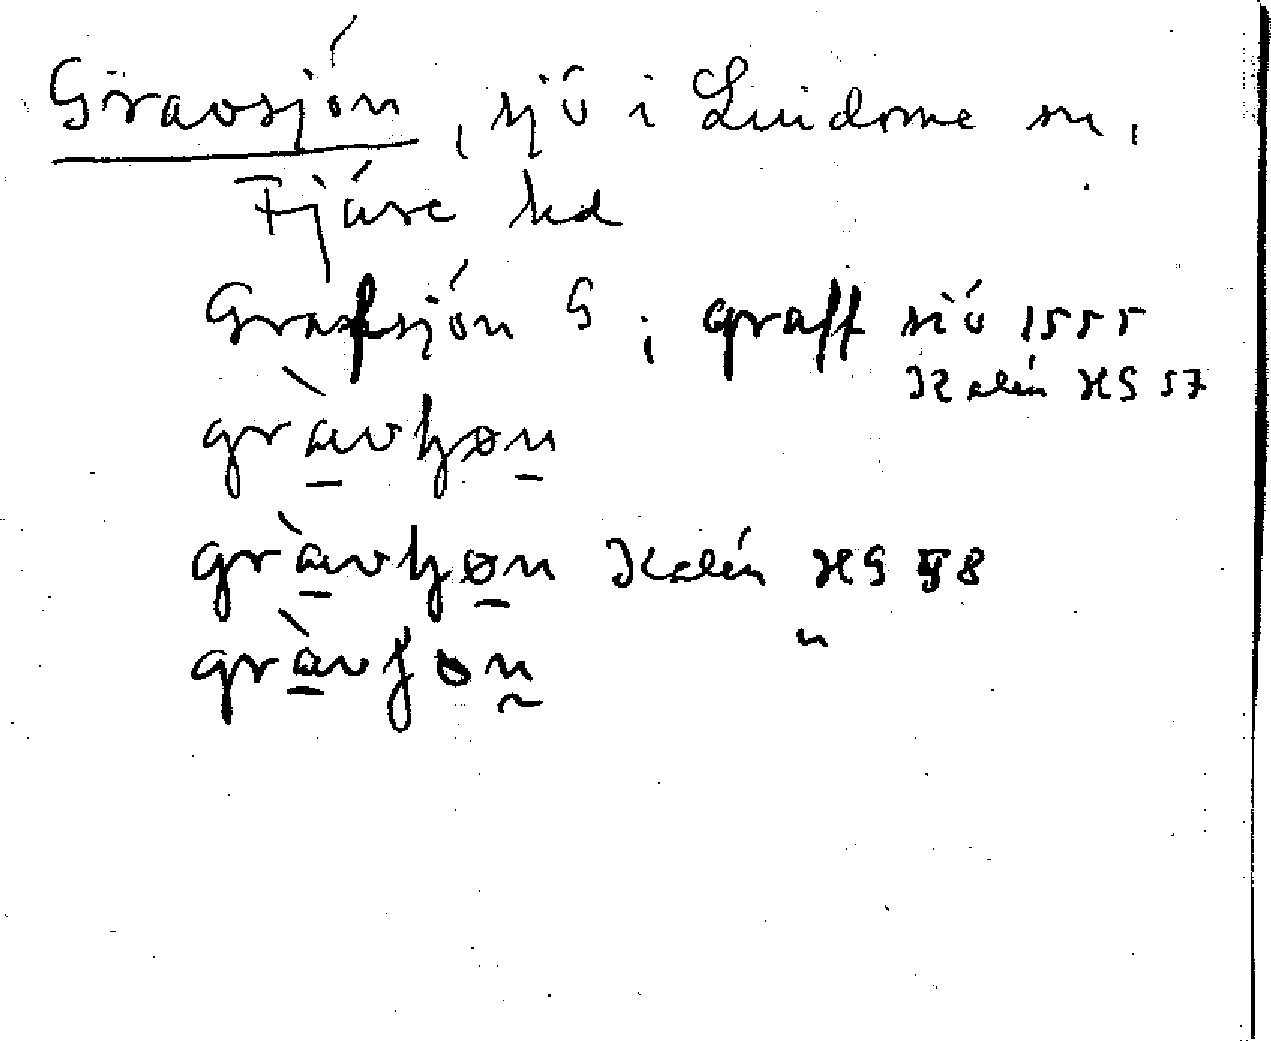 Gravsjön, sjö i Lindome sn,
Fjäre hd
Grafsjön G; graff siö 1555
Kalén HS 57
gràvhøn
gràvhøn Kalén HS 58
gràvʃon "